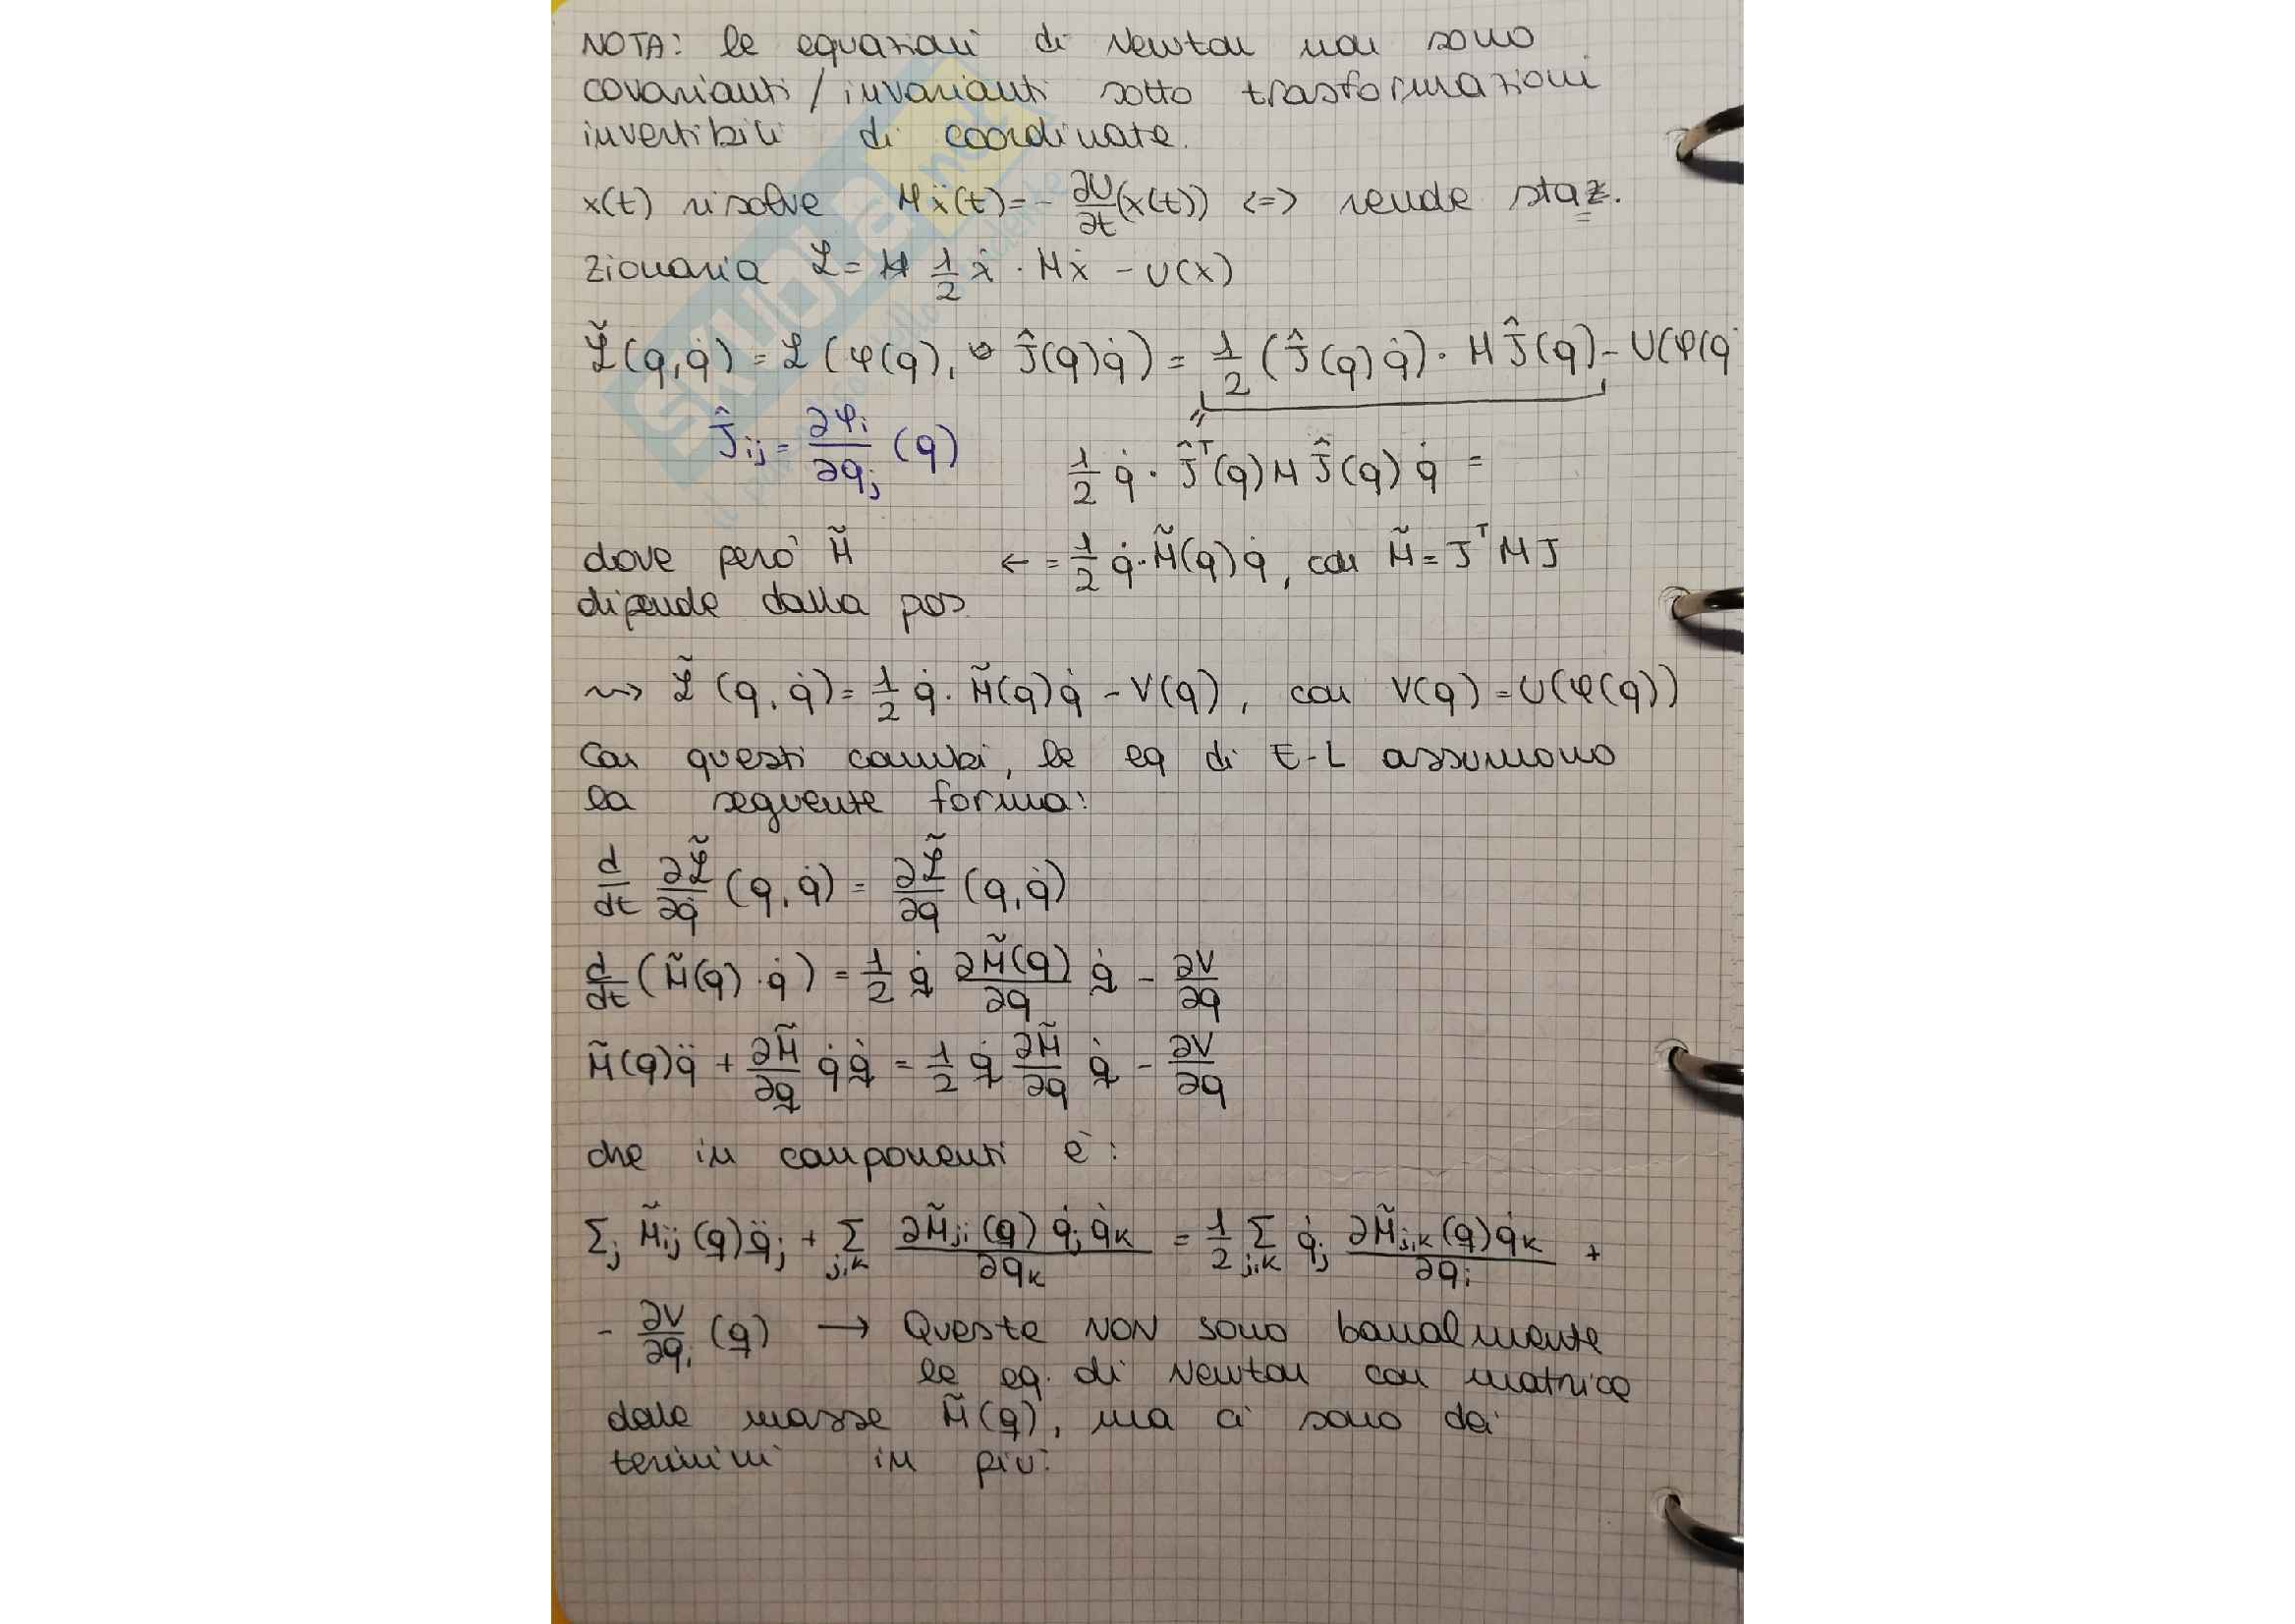 NOTA: le equazioni di Newton non sono
covarianti/invarianti sotto trasformazioni
invertibili di coordinate.
x(t) risolve Mẍ(t) = - ∂U/∂t (x(t)) <=> rende staz.
zionaria ℒ = 1/2 ẋ · Mẋ - U(x)
ℒ̃(q,q̇) = ℒ(φ(q), Ĵ(q)q̇) = 1/2 (Ĵ(q)q̇) · MĴ(q) - U(φ(q
Ĵij = ∂φi/∂qj (q)
1/2 q̇ · Ĵᵀ(q)MĴ(q)q̇ =
dove però M̃ ← = 1/2 q̇ · M̃(q)q̇, con M̃ = JᵀMJ
dipende dalla pos.
⇝ ℒ̃(q,q̇) = 1/2 q̇ · M̃(q)q̇ - V(q), con V(q) = U(φ(q))
Con questi cambi, le eq di E-L assumono
la seguente forma:
d/dt ∂ℒ̃/∂q̇ (q,q̇) = ∂ℒ̃/∂q (q,q̇)
d/dt (M̃(q)·q̇) = 1/2 q̇ ∂M̃(q)/∂q q̇ - ∂V/∂q
M̃(q)q̈ + ∂M̃/∂q q̇q̇ = 1/2 q̇ ∂M̃/∂q q̇ - ∂V/∂q
che in componenti è:
Σj M̃ij(q)q̈j + Σj,k ∂M̃ji(q)q̇jq̇k/∂qk = 1/2 Σj,k q̇j ∂M̃j,k(q)q̇k/∂qi +
- ∂V/∂qi (q) → Queste NON sono banalmente
le eq. di Newton con matrice
delle masse M̃(q), ma ci sono dei
termini in più: